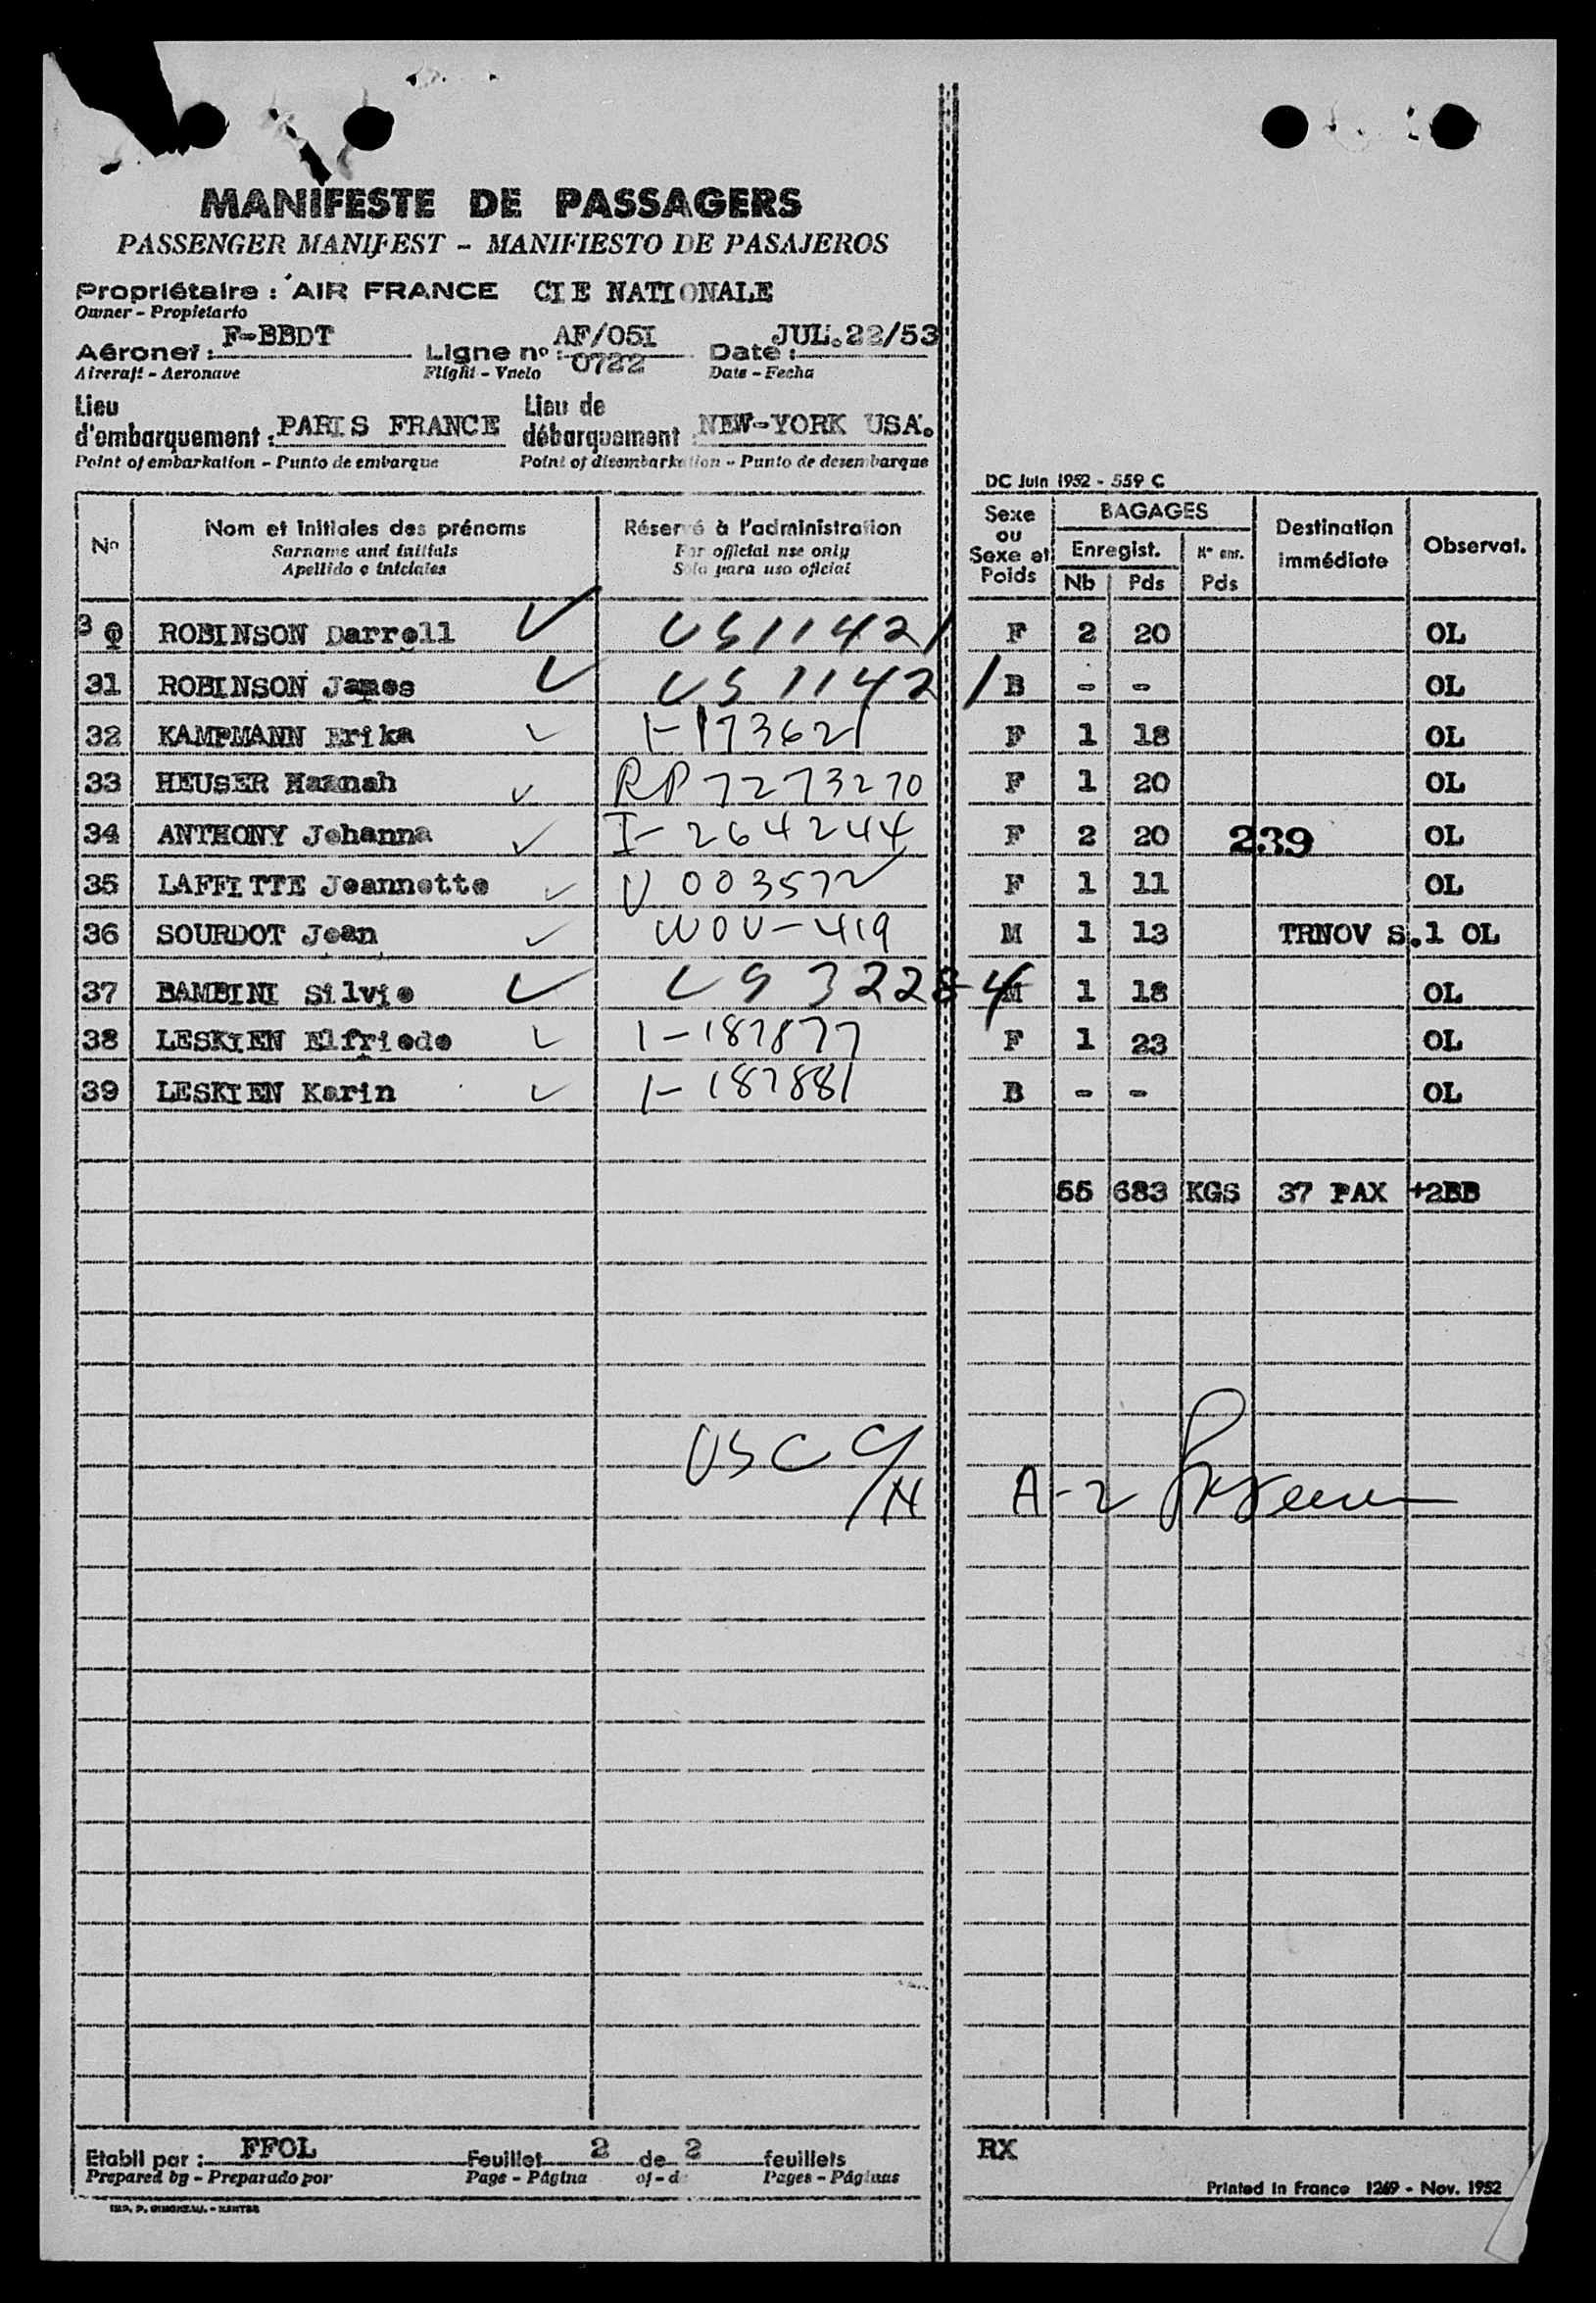 MANIFESTE DE PASSAGERS
PASSENGER MANIFEST - MANIFIESTO DE PASAJEROS
Propriétaire : AIR FRANCE CIE NATIONALE
Owner - Propietario
Aéronef : F-BBDT Ligne nº : AF/05I 0722 Date : JUL.22/53
Aircraft - Aeronave Flight - Vuelo Date - Fecha
Lieu d'embarquement : PARIS FRANCE Lieu de débarquement : NEW-YORK USA.
Point of embarkation - Punto de embarque Point of disembarkation - Punto de desembarque
DC Juin 1952 - 559 C
Nº Nom et initiales des prénoms Réservé à l'administration Sexe ou Sexe et Poids BAGAGES Destination immédiate Observat.
Surname and initials For official use only Enregist. Nº enr.
Apellido e iniciales Solo para uso oficial Nb Pds Pds
30 ROBINSON Darrell US11421 F 2 20 OL
31 ROBINSON James US 11421 B - - OL
32 KAMPMANN Erika I-173621 F 1 18 OL
33 HEUSER Hannah RP 7273270 F 1 20 OL
34 ANTHONY Johanna I-264244 F 2 20 239 OL
35 LAFFITTE Jeannette V 003572 F 1 11 OL
36 SOURDOT Jean WOU-419 M 1 13 TRNOV S.1 OL
37 BAMBINI Silvio US 32284 M 1 18 OL
38 LESKIEN Elfriede I-187877 F 1 23 OL
39 LESKIEN Karin I-187881 B - - OL
55 683 KGS 37 PAX +2BB
USC 9/N A-2
Etabli par : FFOL Feuillet 2 de 2 feuillets RX
Prepared by - Preparado por Page - Página of - de Pages - Páginas
Printed in France 1269 - Nov. 1952